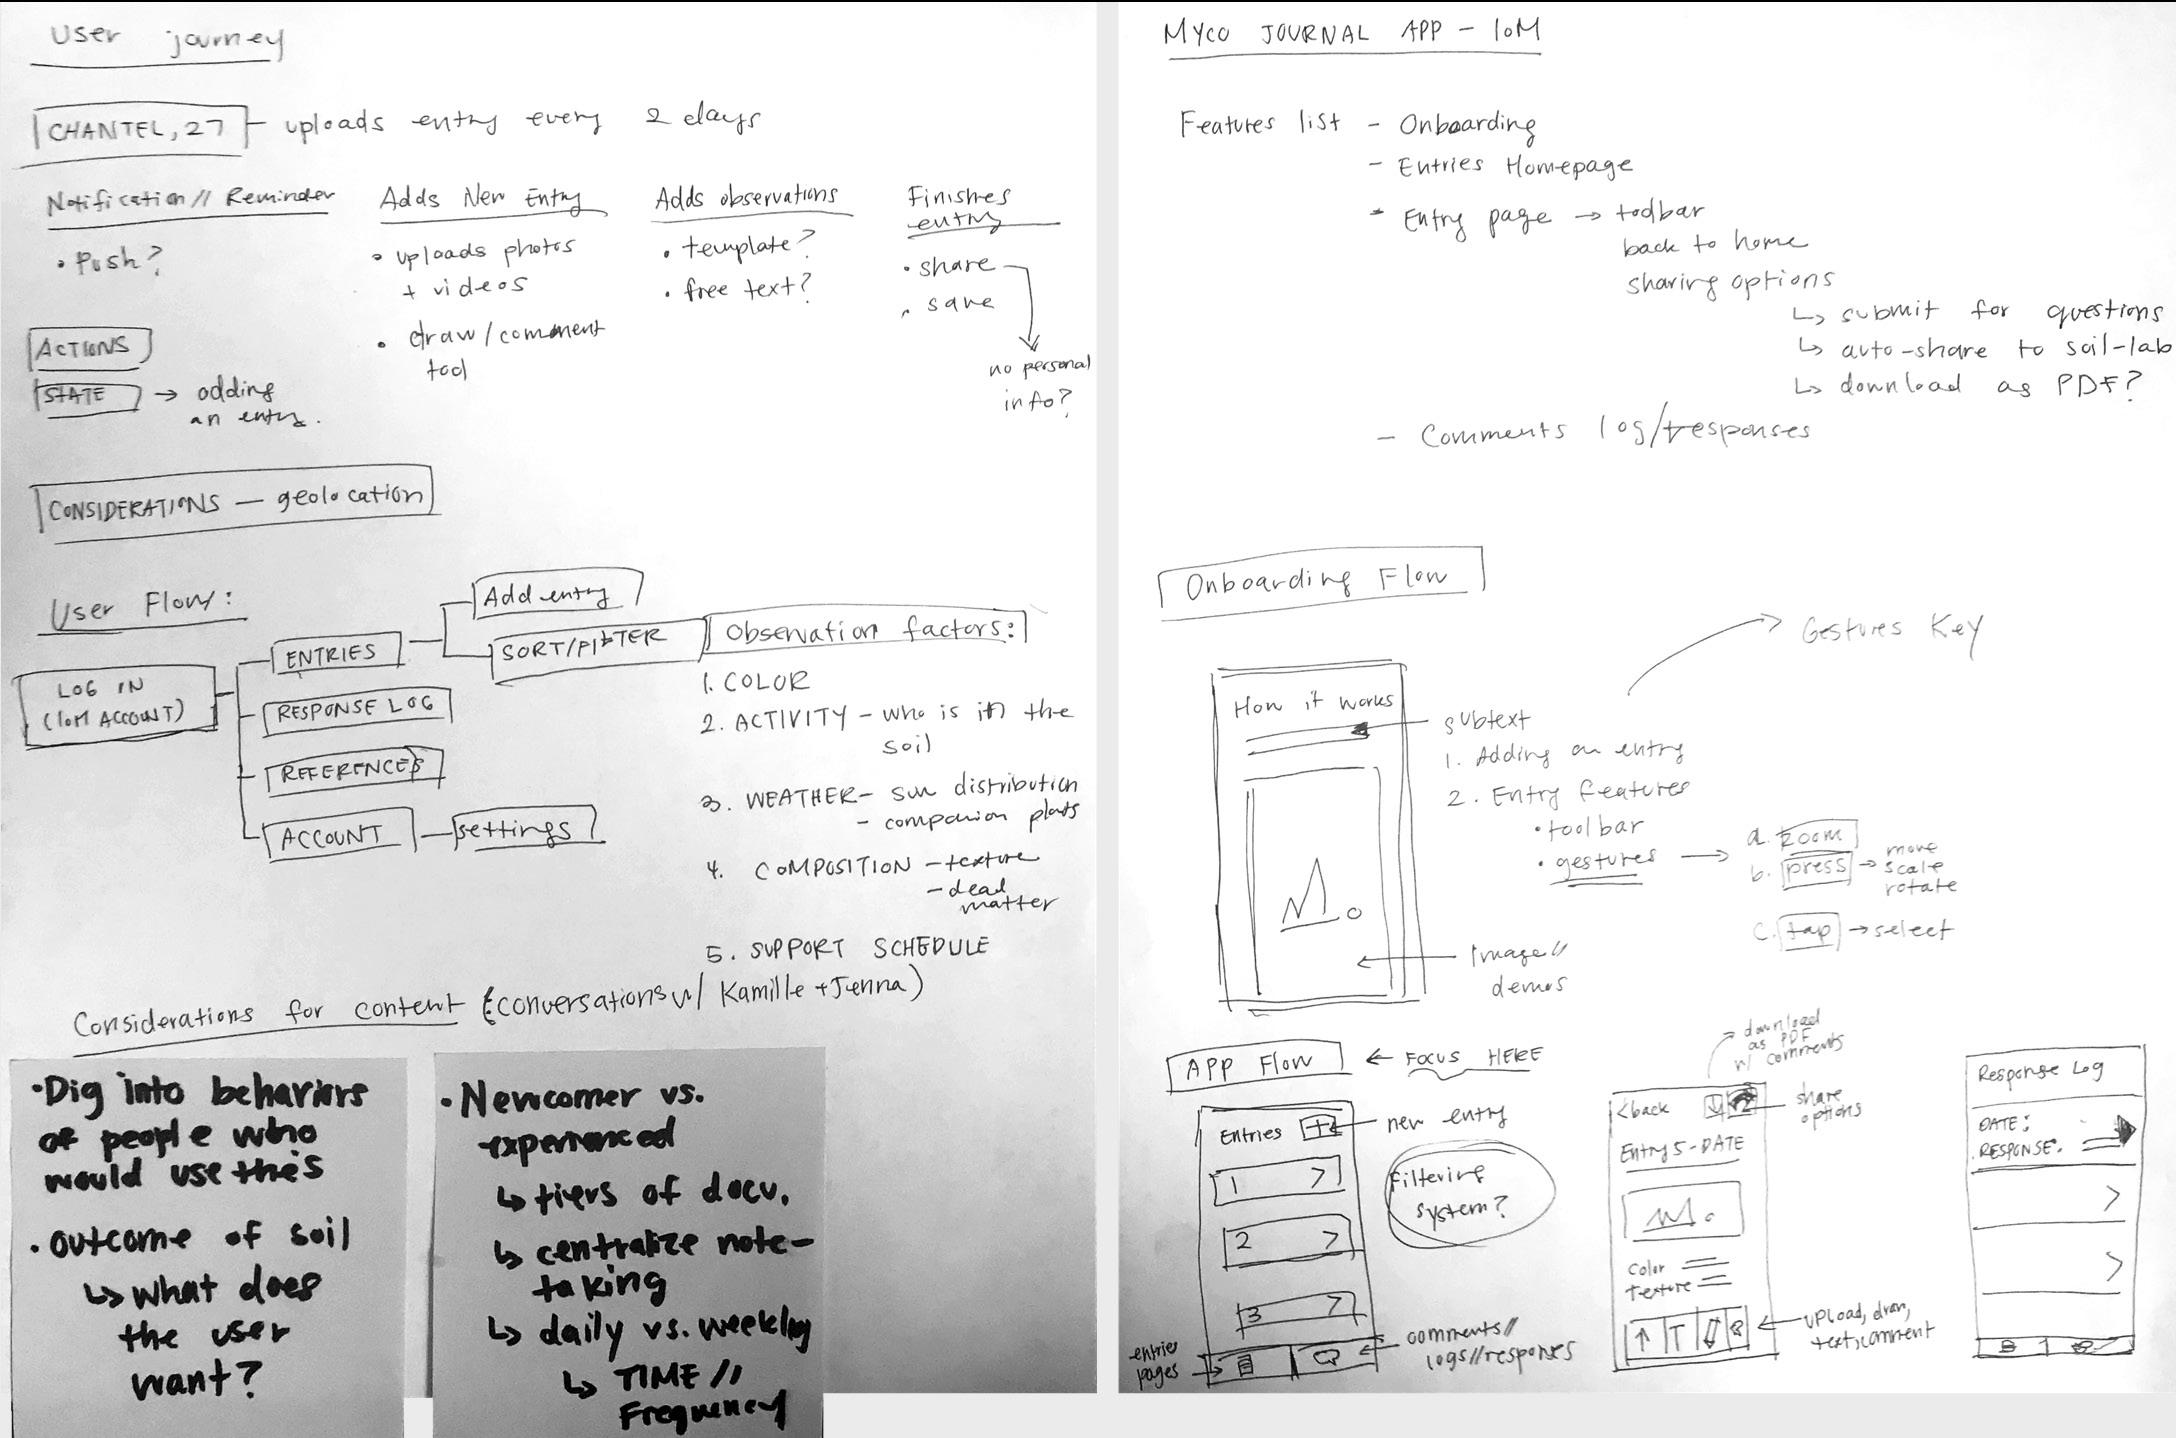 User journey
CHANTEL, 27 - uploads entry every 2 days
Notification // Reminder
• Push?
Adds New Entry
• uploads photos
+ videos
• draw/comment
tool
Adds observations
• template?
• free text?
Finishes
entry
• share
• save
no personal
info?
ACTIONS
STATE → adding
an entry.
CONSIDERATIONS — geolocation
User Flow:
LOG IN
(IoM ACCOUNT)
ENTRIES
Add entry
SORT/FILTER
RESPONSE LOG
REFERENCES
ACCOUNT
settings
Observation factors:
1. COLOR
2. ACTIVITY - who is in the
soil
3. WEATHER - sun distribution
- companion plants
4. COMPOSITION - texture
- dead
matter
5. SUPPORT SCHEDULE
Considerations for content (conversations w/ Kamille + Jenna)
• Dig into behaviors
of people who
would use this
• outcome of soil
↳ what does
the user
want?
• Newcomer vs.
experienced
↳ tiers of docu.
↳ centralize note-
taking
↳ daily vs. weekly
↳ TIME //
Frequency
MYCO JOURNAL APP - IoM
Features list - Onboarding
- Entries Homepage
- Entry page → toolbar
back to home
sharing options
↳ submit for questions
↳ auto-share to soil-lab
↳ download as PDF?
- Comments log/responses
Onboarding Flow
Gestures Key
How it works
subtext
1. Adding an entry
2. Entry features
• toolbar
• gestures →
a. zoom
b. press → move
scale
rotate
c. tap → select
Image//
demos
APP FLOW ← FOCUS HERE
Entries +
new entry
1 >
2 >
3 >
filtering
system?
entries
pages
comments//
logs//responses
download
as PDF
w/ comments
<back
share
options
Entry 5-DATE
color
texture
T
upload, draw,
text, comment
Response Log
DATE:
RESPONSE:
>
>